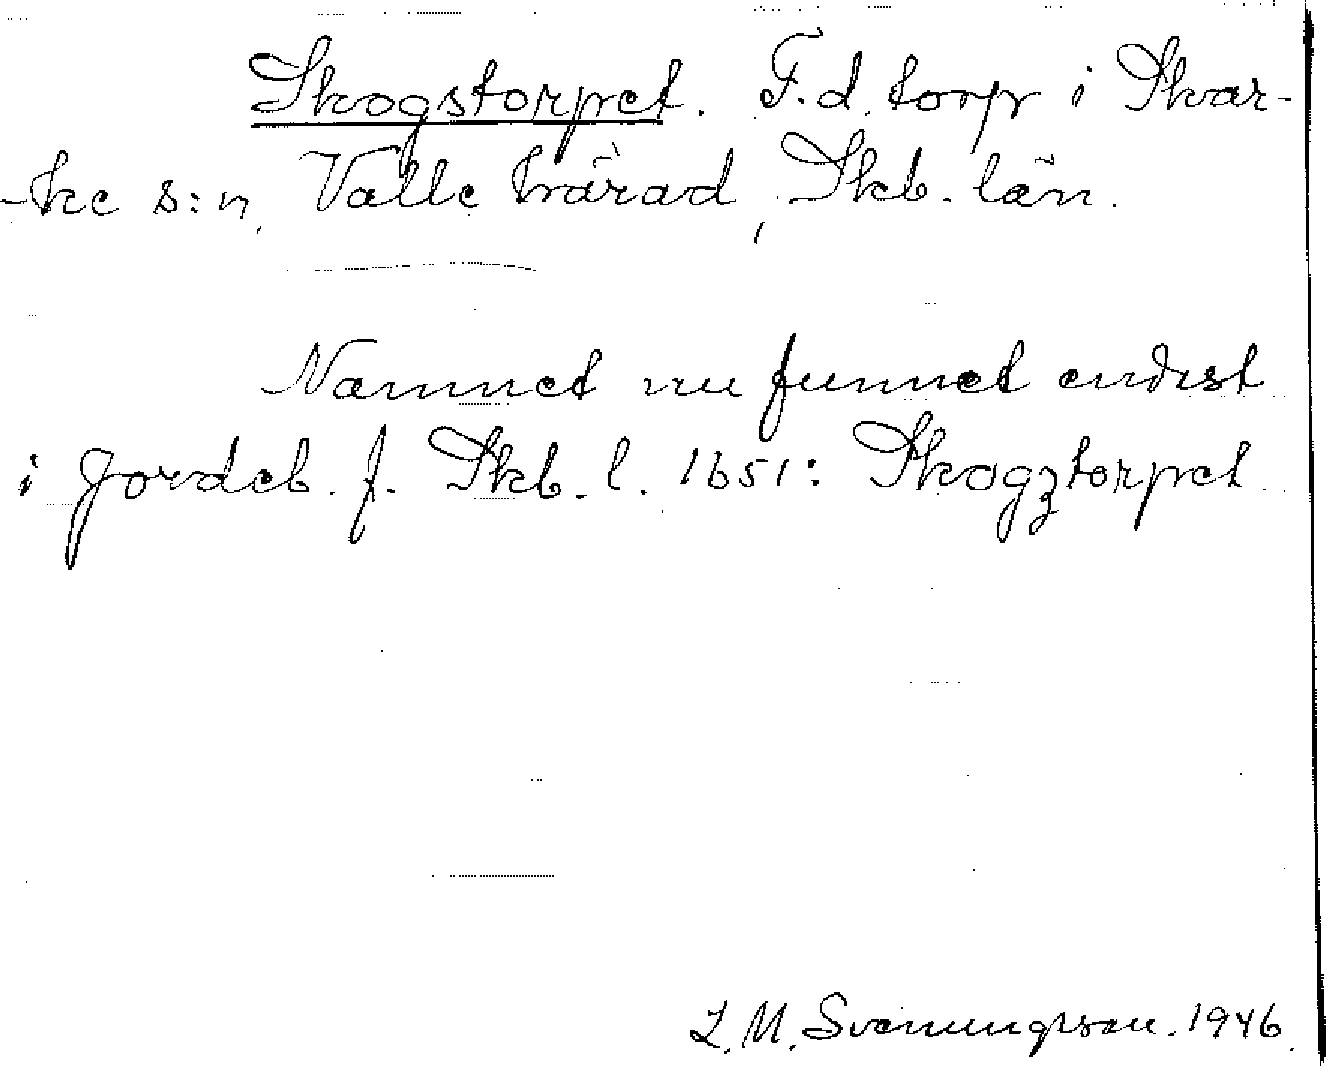 Skogstorpet. F.d. torp i Skar-
-ke s:n, Valle härad, Skb. län.
Namnet nu funnet endast
i Jordeb. f. Skb. l. 1651: Skogztorpet
L. M. Svenungsson. 1946.